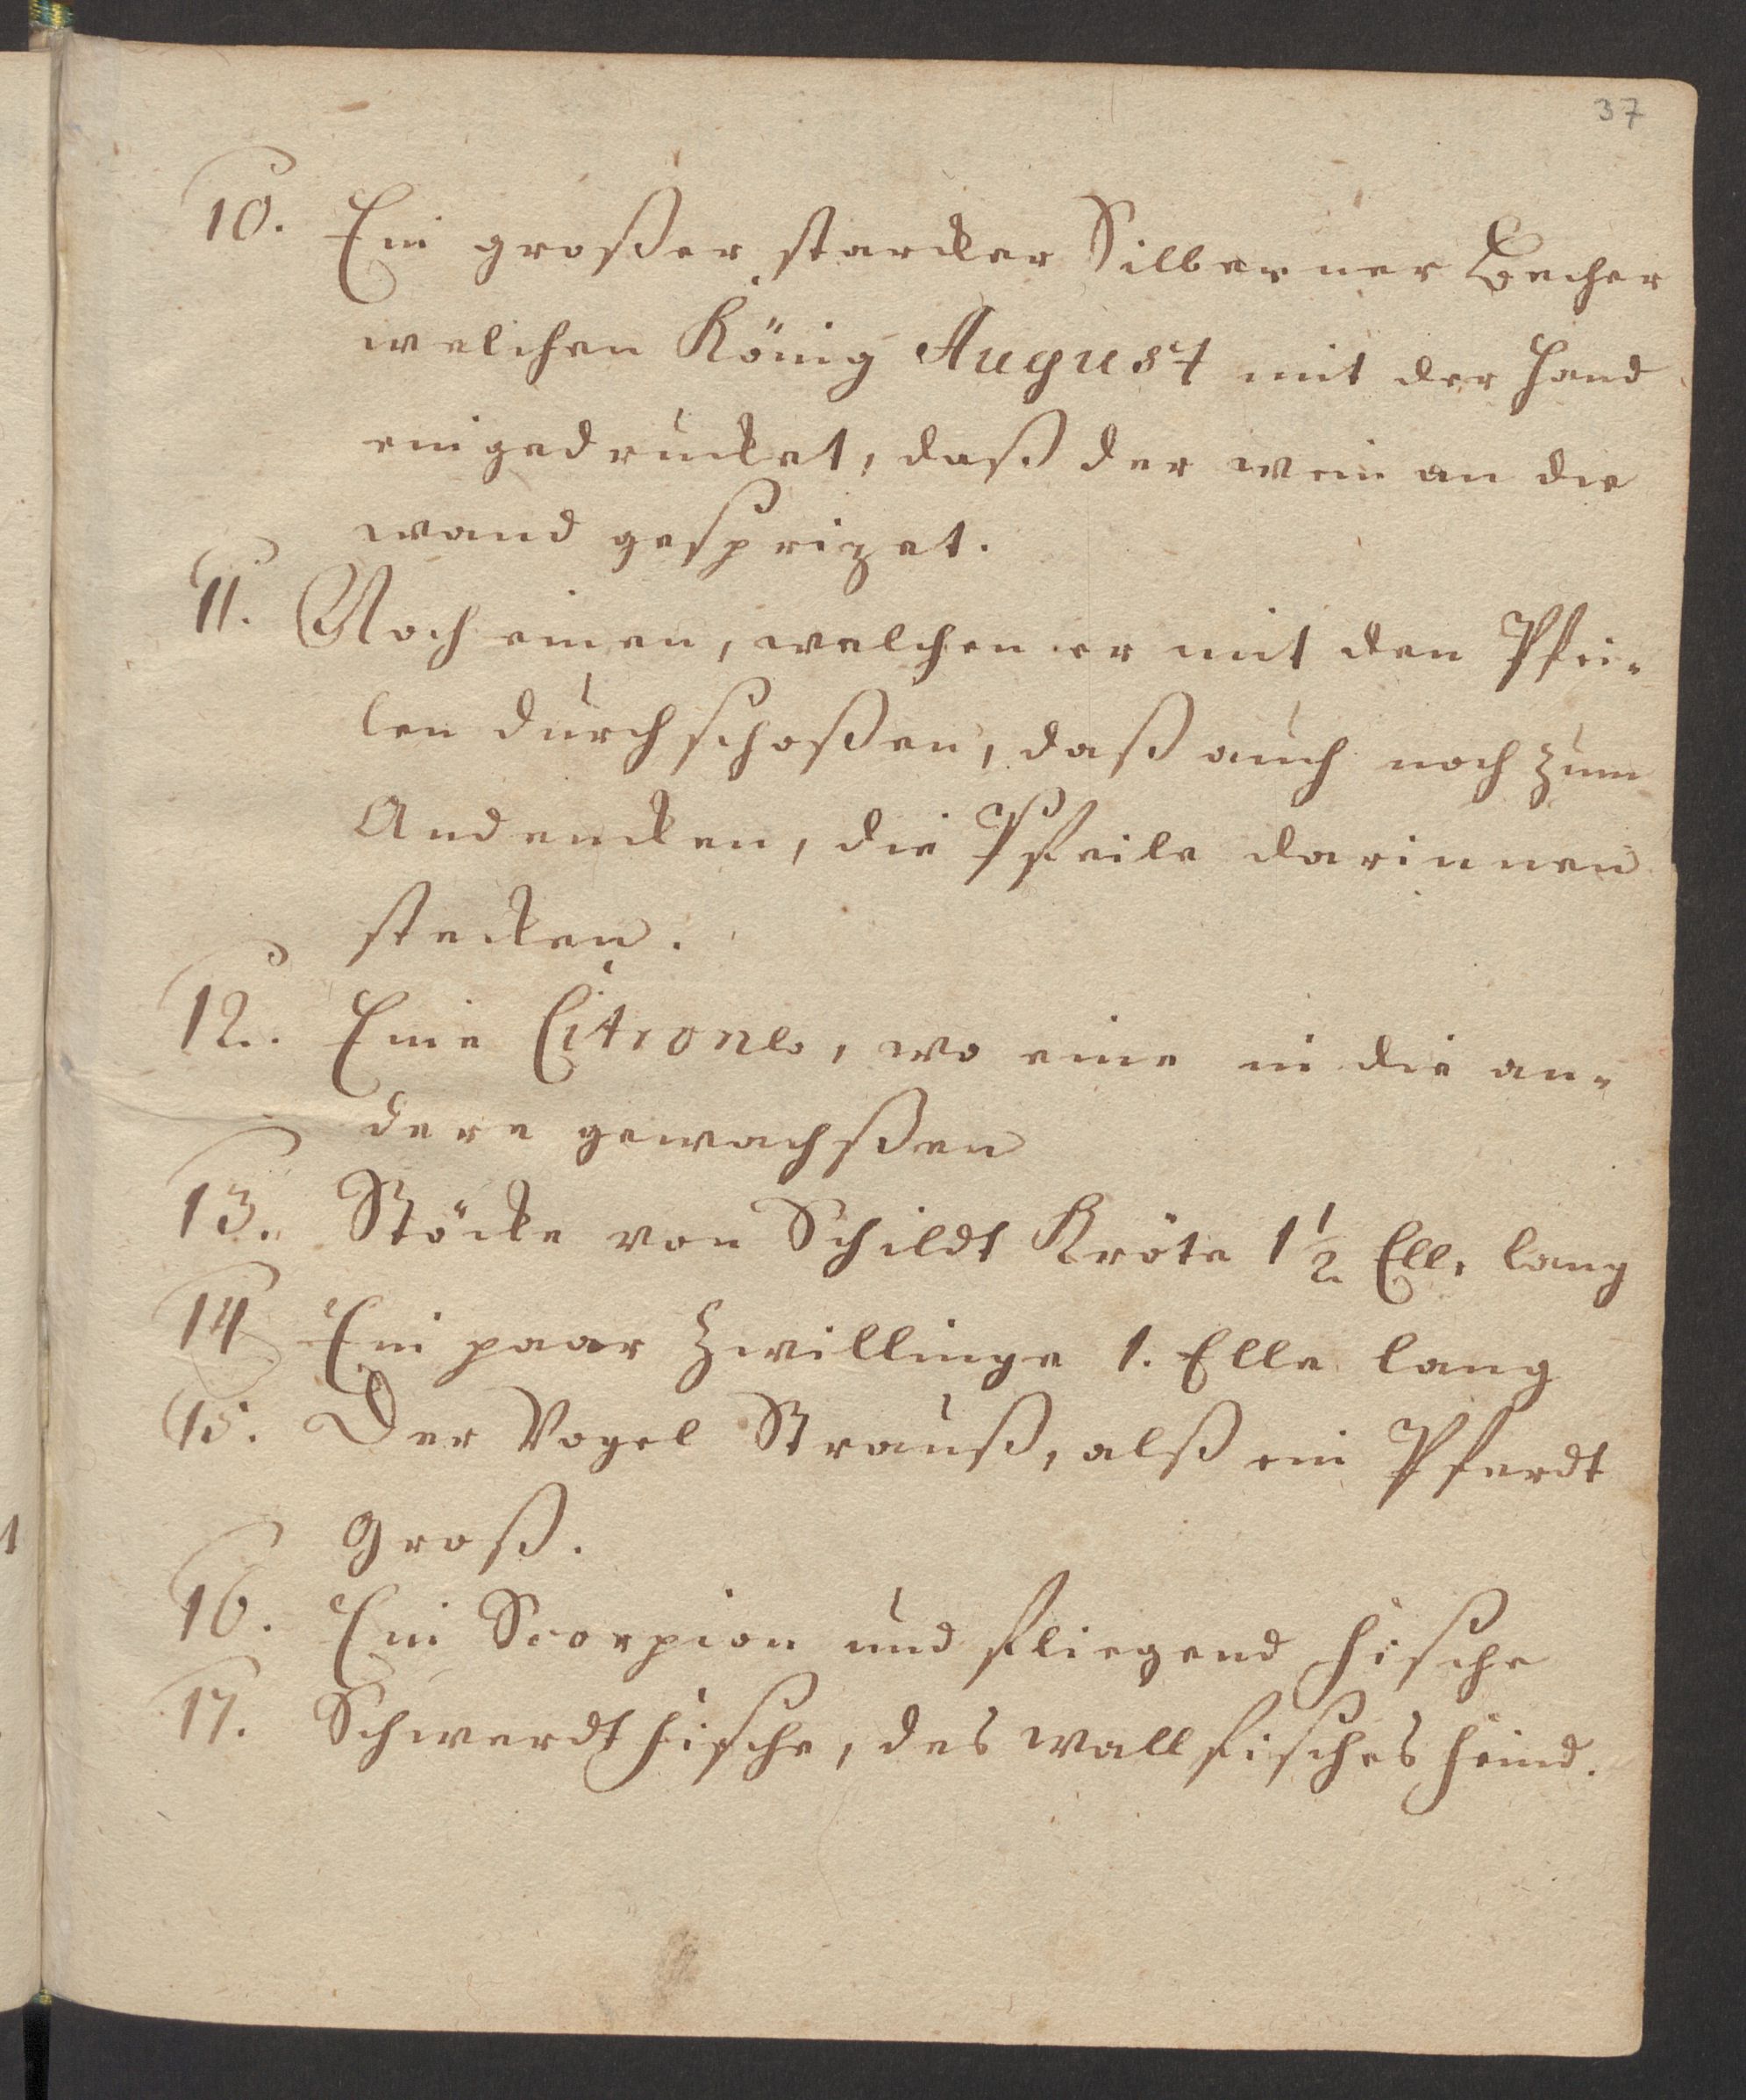 37
10. Ein großer starcker Silberner Becher
welchen König August mit der Hand
eingedrucket, daß der wein an die
wand gesprizet.
11. Noch einen, welchen er mit den Pfei=
len durchschoßen, daß auch noch zum
Andencken, die Pfeile darinnen
stecken.
12. Eine Citrone, wo eine in die an=
dere gewachßen
13. Stöcke von Schildt Kröte 1 1/2 Ell. lang
14 Ein paar Zwillinge 1. Elle lang
15. Der Vogel Strauß, alß ein Pferdt
Groß.
16. Ein Scorpion und fliegend Fische
17. Schwerdt Fische, des wallfisches Feind.